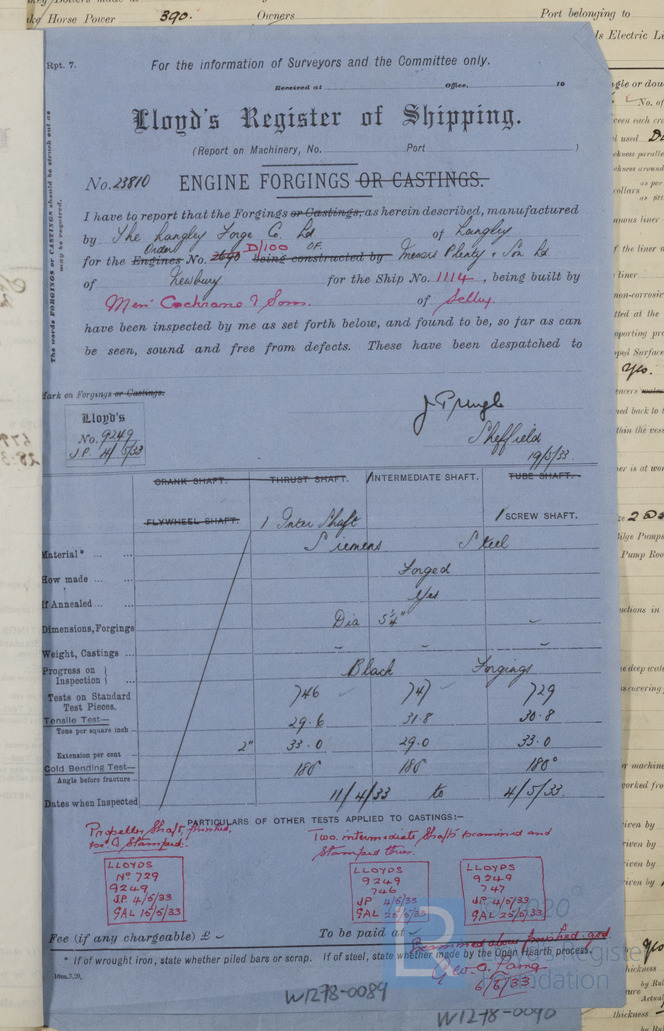 Horse Power 390. Owners
Port belonging to
Is Electric
Rpt. 7.
For the information of Surveyors and the Committee only.
Received at Office, 19
Lloyd's Register of Shipping.
(Report on Machinery, No. Port )
No. 23810 ENGINE FORGINGS OR CASTINGS.
The words FORGINGS or CASTINGS should be struck out as
may be required.
I have to report that the Forgings or Castings, as herein described, manufactured
by The Langley Forge Co. Ld of Langley
for the Engines Order No. 2690 D/100 being constructed by OF Messrs Plenty & Son Ld
of Newbury for the Ship No. 1114, being built by
Messrs Cochrane & Sons. of Selby
have been inspected by me as set forth below, and found to be, so far as can
be seen, sound and free from defects. These have been despatched to
Mark on Forgings or Castings.
Lloyd's
No. 9249
J.P. 4/5/33
J Pringle
Sheffield
19/5/33
CRANK SHAFT. THRUST SHAFT. INTERMEDIATE SHAFT. TUBE SHAFT.
FLYWHEEL SHAFT. 1 Inter Shaft 1 SCREW SHAFT.
Material* ... ... Siemens Steel
How made ... ... Forged
If Annealed ... ... Yes
Dimensions, Forgings Dia 5¼"
Weight, Castings ... - - -
Progress on Inspection Black Forgings
Tests on Standard Test Pieces. 746 747 729
Tensile Test—
Tons per square inch 29.6 31.8 30.8
Extension per cent 2" 33.0 29.0 33.0
Cold Bending Test—
Angle before fracture 180° 180° 180°
Dates when Inspected 11/4/33 to 4/5/33.
PARTICULARS OF OTHER TESTS APPLIED TO CASTINGS:—
Propeller Shaft, finished,
Stamped:
LLOYDS
Nº 729
9249
J.P. 4/5/33
GAL 15/5/33
Two intermediate Shafts examined and
Stamped thus.
LLOYDS
9249
746
JP 4/5/33
GAL 25/5/33
LLOYDS
9249
747
JP 4/5/33
GAL 25/5/33
Fee (if any chargeable) £ To be paid at
Examined above finished
* If of wrought iron, state whether piled bars or scrap. If of steel, state whether made by the Open Hearth process.
6/6/33
© 2020
Lloyd's Register
Foundation
W1278-0089
W1278-0090